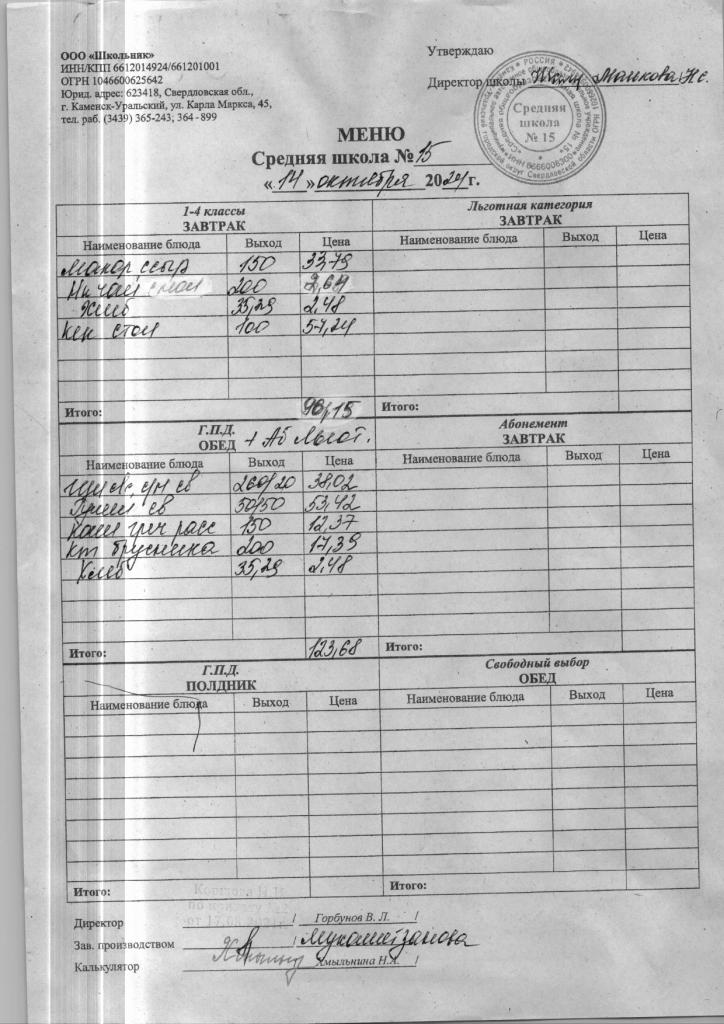 ООО «Школьник»
ИНН/КПП 6612014924/661201001
ОГРН 1046600625642
Юрид. адрес: 623418, Свердловская обл.,
г. Каменск-Уральский, ул. Карла Маркса, 45,
тел. раб. (3439) 365-243; 364 - 899
Утверждаю
Директор школы Маикова Н.С.
Средняя
школа
№ 15
МЕНЮ
Средняя школа № 15
« 14 » октября 2024 г.
1-4 классы
ЗАВТРАК
Льготная категория
ЗАВТРАК
Наименование блюда Выход Цена
Наименование блюда Выход Цена
Макар, ссыр 150 33-79
чай 200 2,64
Хлеб 35,29 2,48
стол 100 57,24
Итого: 96,15
Итого:
Г.П.Д.
ОБЕД + Аб Льгот.
Абонемент
ЗАВТРАК
Наименование блюда Выход Цена
Наименование блюда Выход Цена
260/20 38,02
св 50/50 53,42
Каша греч расс 150 12,37
Кт брусника 200 17,39
Хлеб 35,29 2,48
Итого: 123,68
Итого:
Г.П.Д.
ПОЛДНИК
Свободный выбор
ОБЕД
Наименование блюда Выход Цена
Наименование блюда Выход Цена
Итого:
Итого:
Директор / Горбунов В. Л. /
Зав. производством / Мухаметзанова
Калькулятор Хмыльнина Н.А. /